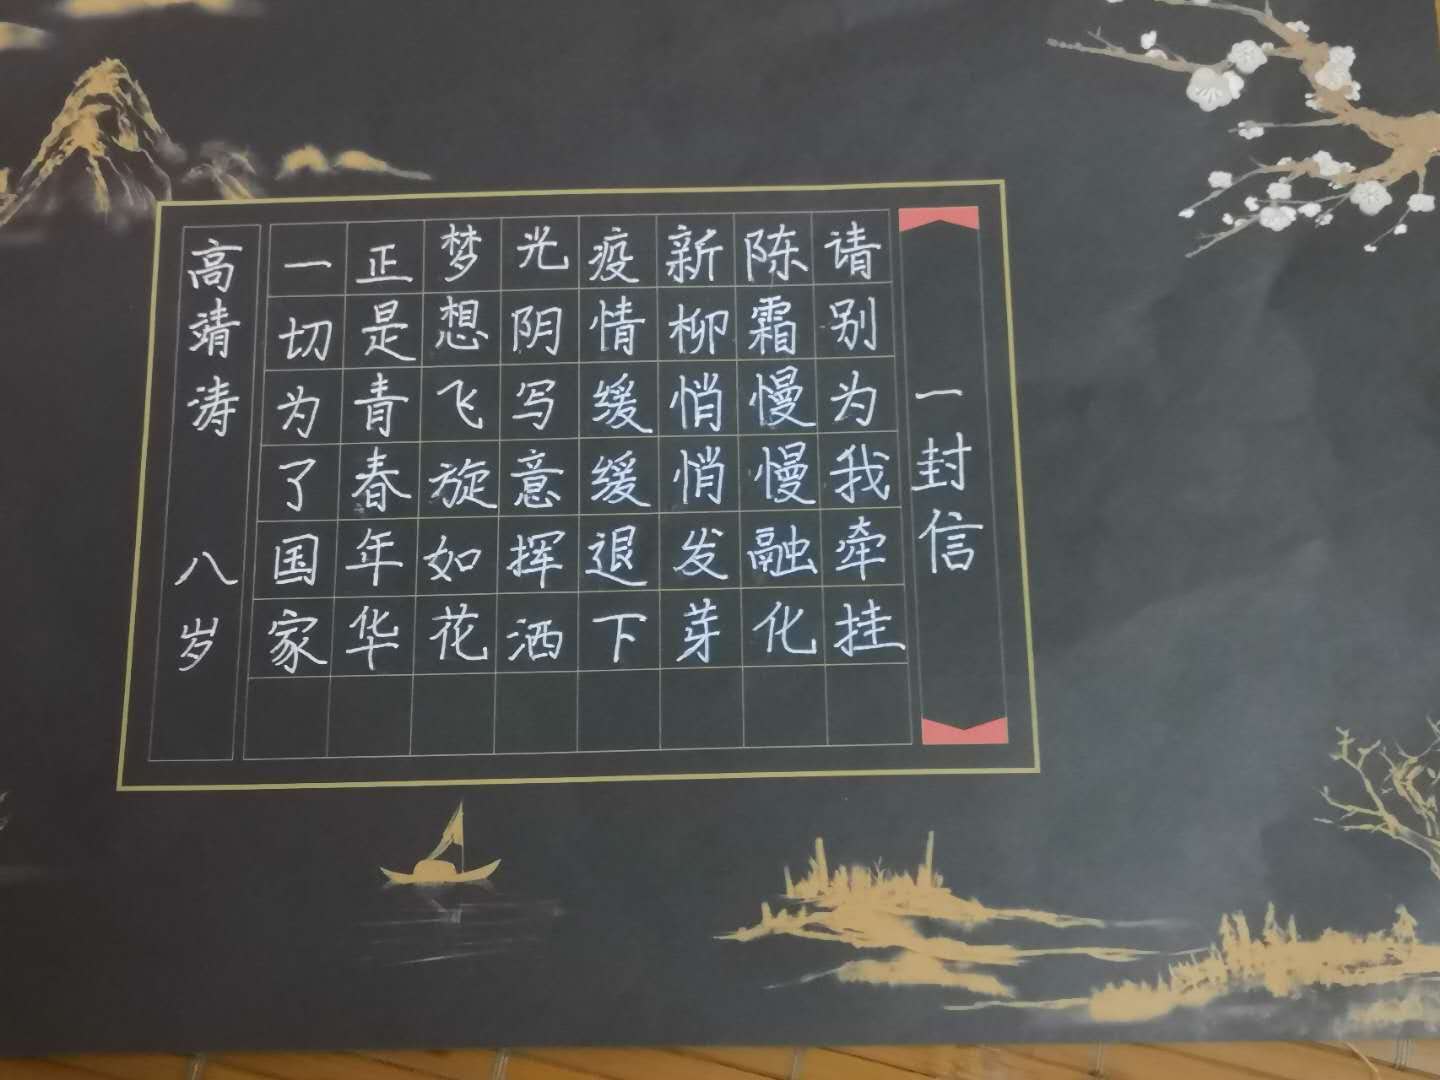 一封信
请别为我牵挂
陈霜慢慢融化
新柳悄悄发芽
疫情缓缓退下
光阴写意挥洒
梦想飞旋如花
正是青春年华
一切为了国家
高靖涛 八岁